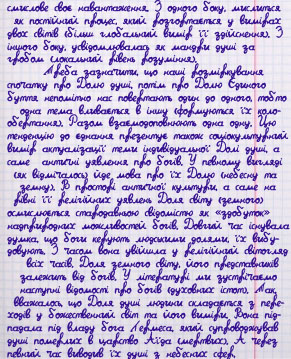 смислове своє навантаження. З одного боку, мислиться
як постійний процес, який розгортається у вимірах
двох світів (більш глобальний вимір її здійснення). З
іншого боку, усвідомлювалась як мандри душі за
гробом (локальний рівень розуміння).
Треба зазначити, що наші розмірковування
спочатку про Долю душі, потім про Долю Єдиного
буття непомітно нас повертають один до одного, тобто
одна тема вливається в іншу (формуються їх коло-
обертання). Разом взаємодоповнюють одна одну. Цю
тенденцію до єднання презентує також соціокультурний
вимір актуалізації теми індивідуальної Долі душі, а
саме античні уявлення про богів. У певному вигляді
(як відмічалось) йде мова про їх Долю (небесну та
земну). В просторі античної культури, а саме на
рівні її релігійних уявлень Доля світу (земного)
осмислюється стародавньою свідомістю як «здобуток»
надприродних можливостей богів. Довгий час існувала
думка, що боги керують людськими долями, їх вибу-
довують. З часом вона увійшла у релігійний світогляд
всіх часів. Доля земного світу, його представників
залежить від богів. У літературі ми зустрічаємо
наступні відомості про богів (духовних істот). Так,
вважалось, що Доля душі людини складається з пере-
ходів у божественний світ та його виміри. Вона під-
падала під владу бога Гермеса, який супроводжував
душі померлих в царство Аїда (мертвих). А через
певний час виводив їх душі з небесних сфер